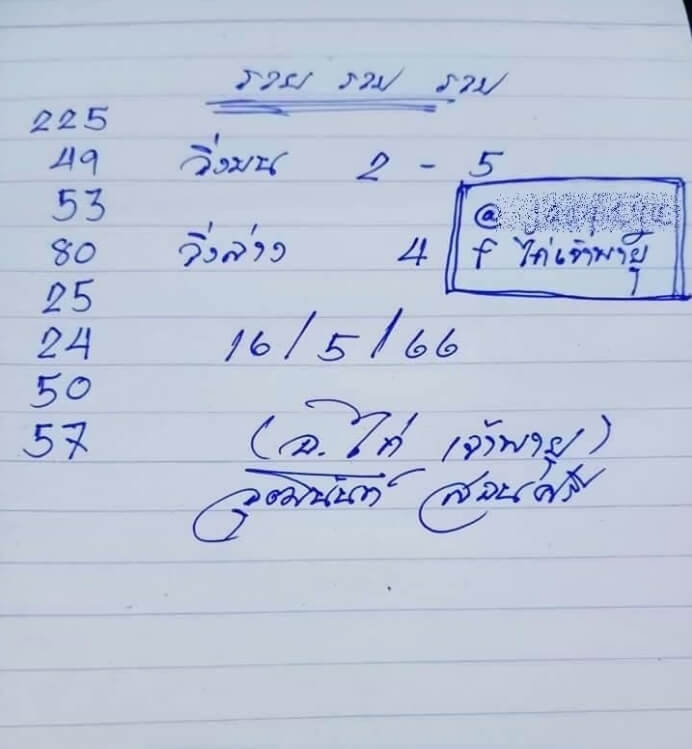 รวย รวย รวย
225
49 วิ่งบน 2 - 5
53
80 วิ่งล่าง 4
@
f ไก่เจ้าพายุ
25
24 16/5/66
50
57 (อ.ไก่ เจ้าพายุ)